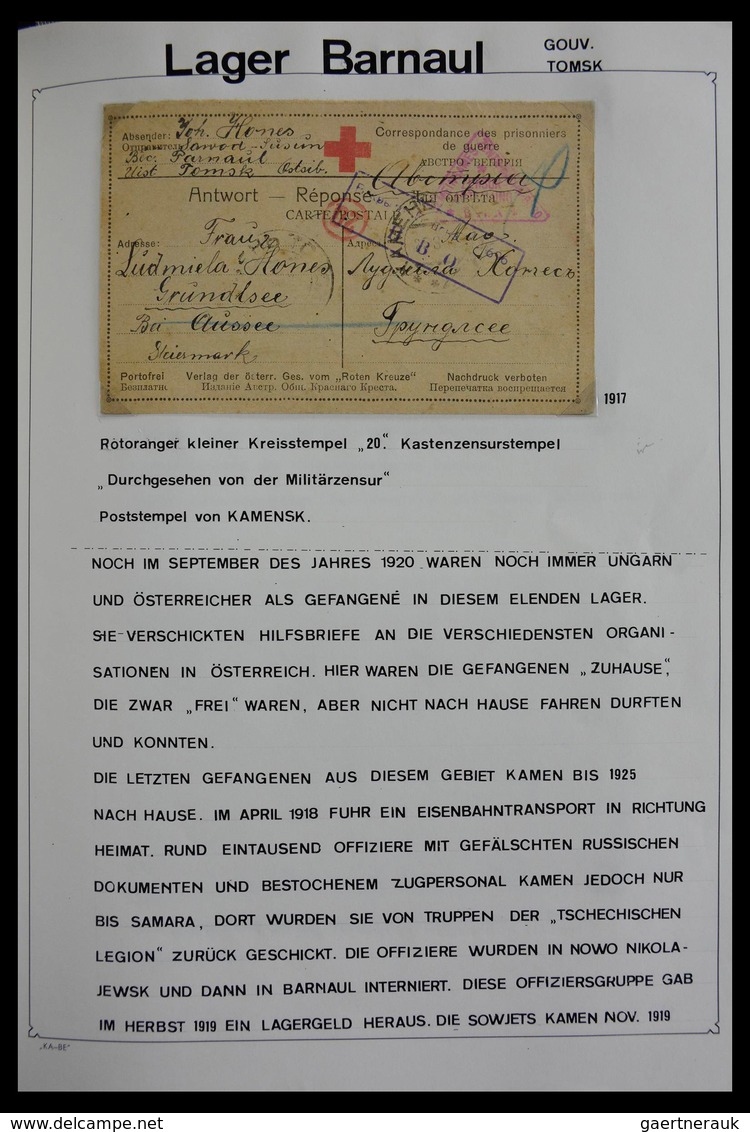 Lager Barnaul
GOUV.
TOMSK
Absender: Joh. Hones
Отправитель
Bic. Barnaul
Tomsk Ostsib.
Correspondance des prisonniers
de guerre
АВСТРО-ВЕНГРІЯ
Австрія
Antwort — Réponse
ОТВѢТА
CARTE POSTALE
КАМЕН
20
Adresse:
Frau
Ludmiela Hones
Grundlsee
Bei Aussee
Steiermark
Грундлсее
Portofrei Verlag der österr. Ges. vom „Roten Kreuze“ Nachdruck verboten
Безплатно Изданіе Австр. Общ. Краснаго Креста. Перепечатка воспрещается
1917
Rotoranger kleiner Kreisstempel „20“. Kastenzensurstempel
„Durchgesehen von der Militärzensur“
Poststempel von KAMENSK.
NOCH IM SEPTEMBER DES JAHRES 1920 WAREN NOCH IMMER UNGARN
UND ÖSTERREICHER ALS GEFANGENE IN DIESEM ELENDEN LAGER.
SIE VERSCHICKTEN HILFSBRIEFE AN DIE VERSCHIEDENSTEN ORGANI-
SATIONEN IN ÖSTERREICH. HIER WAREN DIE GEFANGENEN „ZUHAUSE“,
DIE ZWAR „FREI“ WAREN, ABER NICHT NACH HAUSE FAHREN DURFTEN
UND KONNTEN.
DIE LETZTEN GEFANGENEN AUS DIESEM GEBIET KAMEN BIS 1925
NACH HAUSE. IM APRIL 1918 FUHR EIN EISENBAHNTRANSPORT IN RICHTUNG
HEIMAT. RUND EINTAUSEND OFFIZIERE MIT GEFÄLSCHTEN RUSSISCHEN
DOKUMENTEN UND BESTOCHENEM ZUGPERSONAL KAMEN JEDOCH NUR
BIS SAMARA, DORT WURDEN SIE VON TRUPPEN DER „TSCHECHISCHEN
LEGION“ ZURÜCK GESCHICKT. DIE OFFIZIERE WURDEN IN NOWO NIKOLA-
JEWSK UND DANN IN BARNAUL INTERNIERT. DIESE OFFIZIERSGRUPPE GAB
IM HERBST 1919 EIN LAGERGELD HERAUS. DIE SOWJETS KAMEN NOV. 1919
„KA-BE“
gaertnerauk